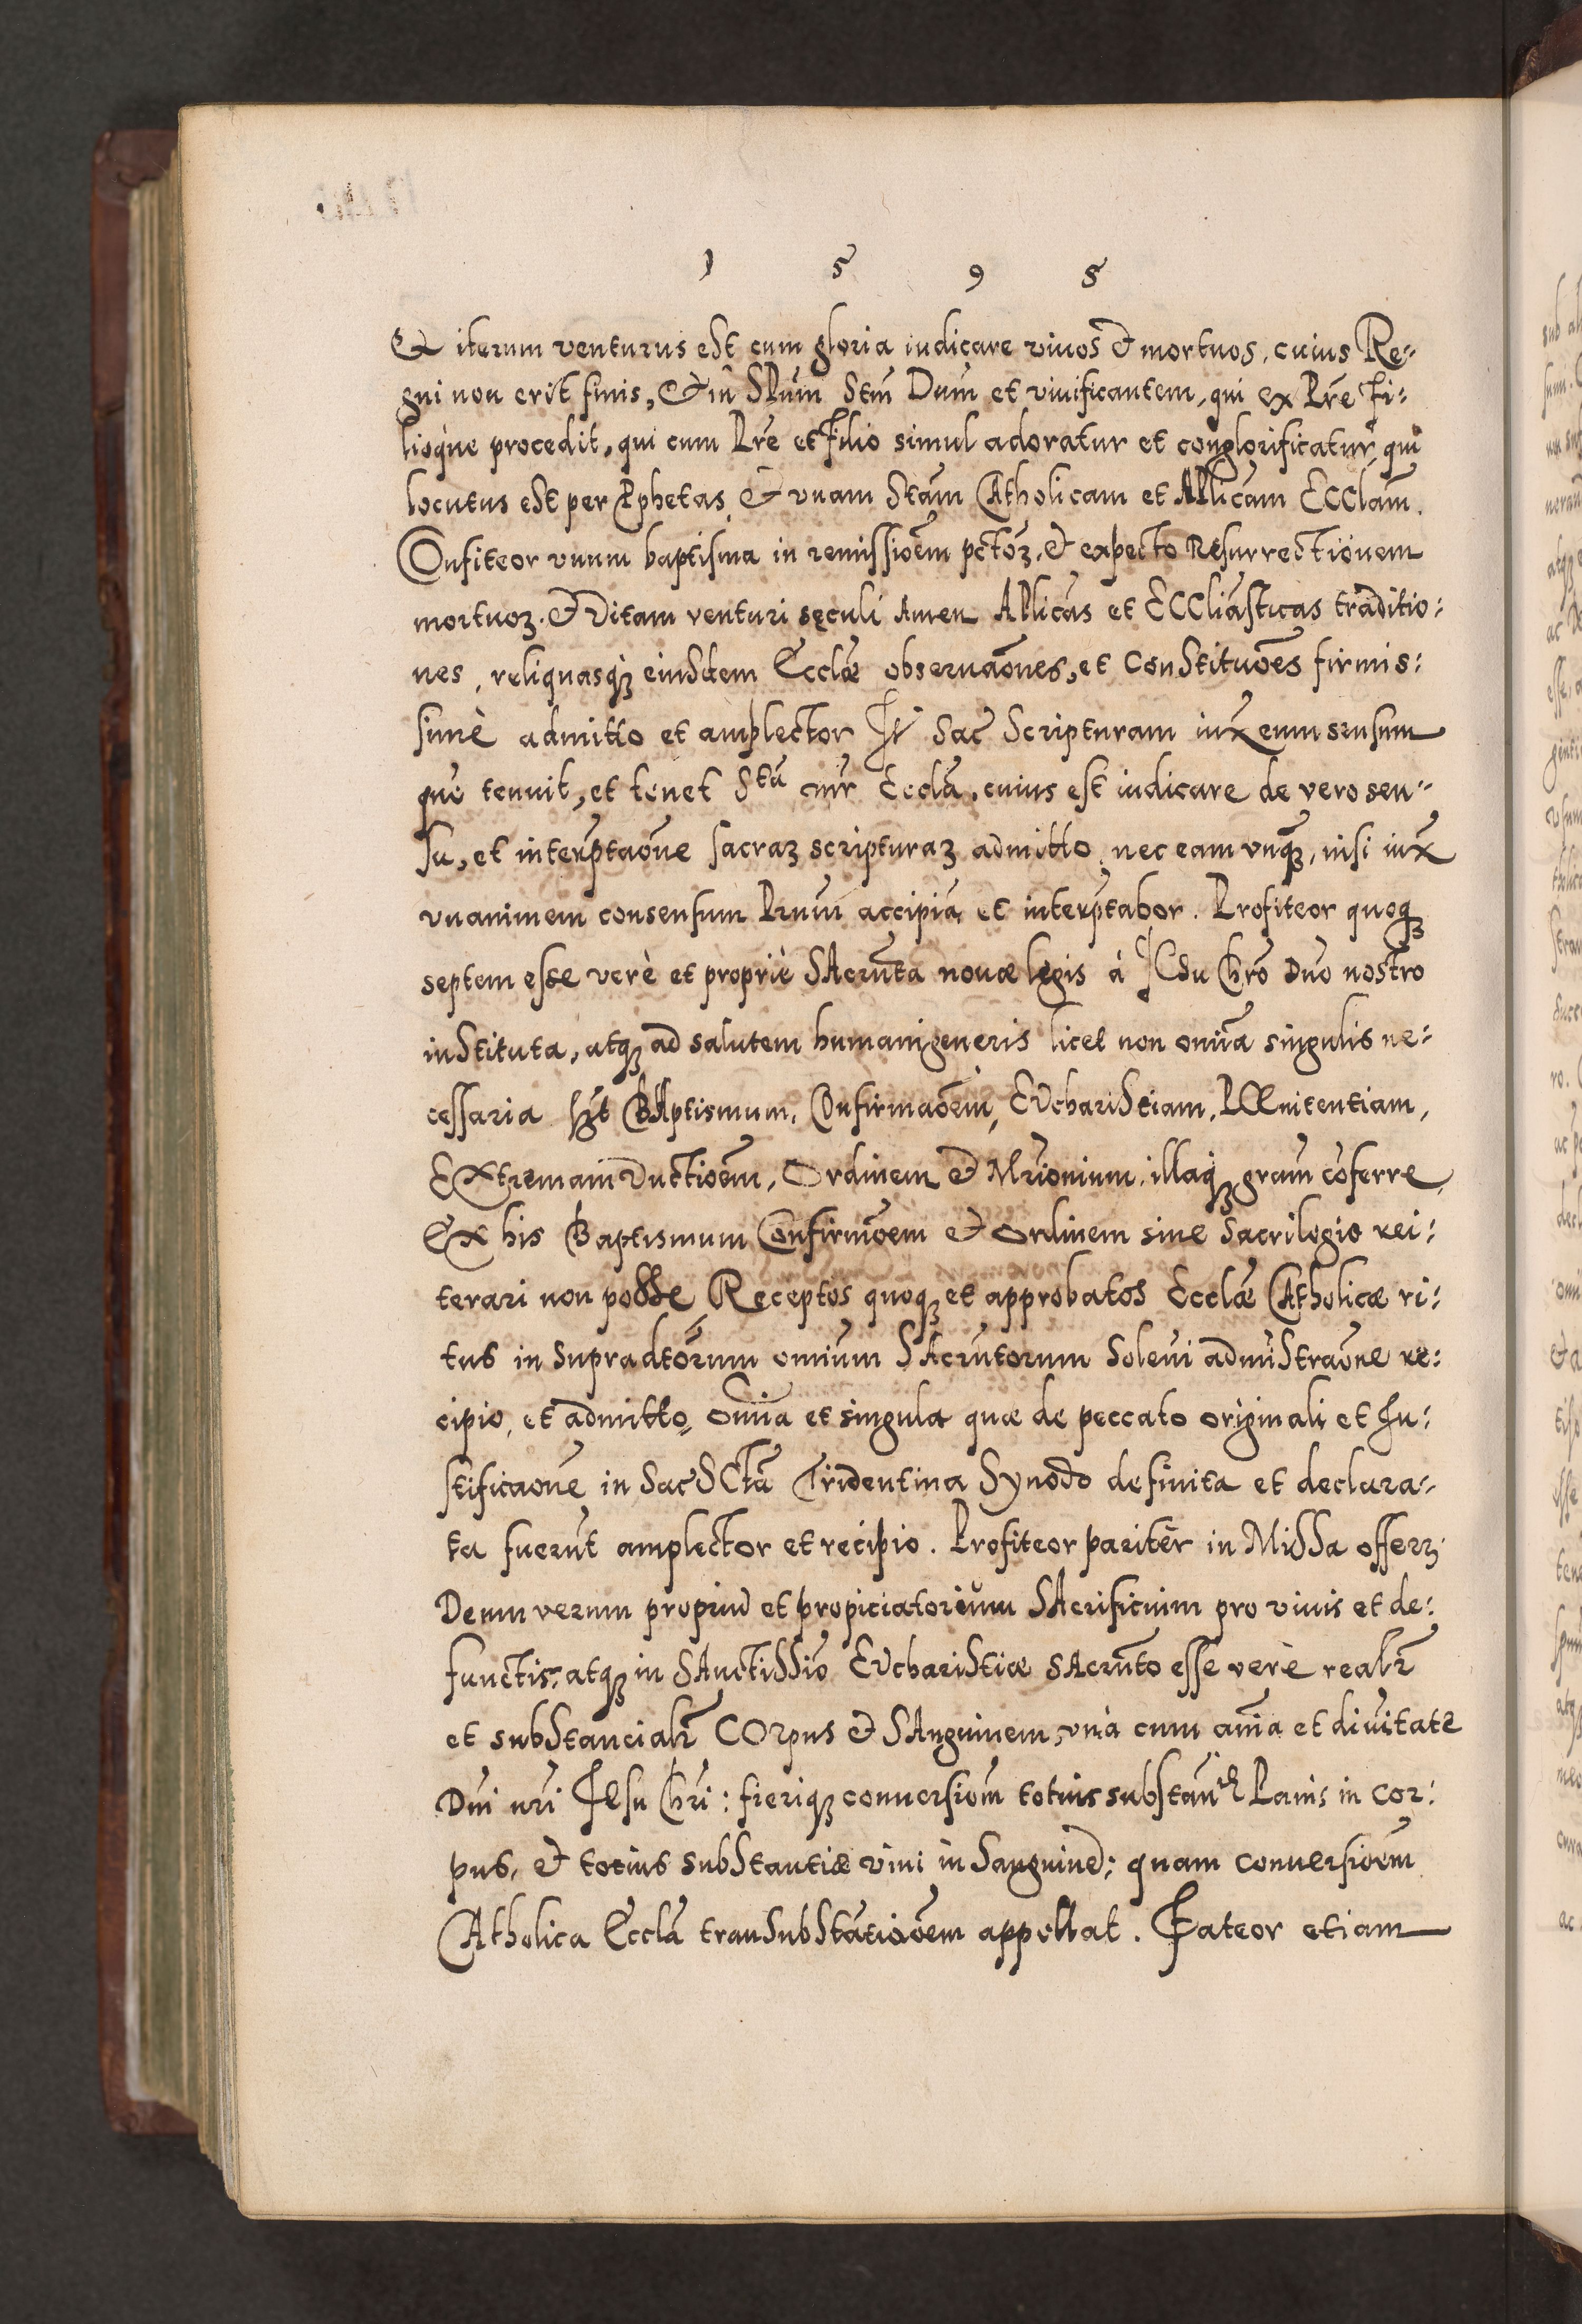 1 5 9 5
Et iterum venturus est cum gloria iudicare viuos et mortuos, cuius Re=
gni non erit finis, Et in SPum Stm Dum et viuificantem, qui ex Pre Fi=
lioque procedit, qui cum Pre et Filio simul adoratur et conglorificatur, qui
locutus est per Pphetas, Et vnam Stam Catholicam et APlicam ECClam.
Confiteor vnum baptisma in remissioem pctoꝝ, et expecto Resurrectionem
mortuoꝝ. et Vitam venturi sęculi Amen APlicas et ECCliasticas traditio=
nes, reliquasqꝫ eiusdem Ecclæ obseruaones, et Constituoes firmis=
simè admitto et amplector It Sac Scripturam iux eum sensum
quē tenuit, et tenet Sta mr Eccla, cuius est iudicare de vero sen=
su, et interptaone sacraꝝ scripturaꝝ admitto, nec eam vnqꝫ, nisi iux
vnanimem consensum Prum accipiā et interptabor. Profiteor quoqꝫ
septem esse verè et propriè SAcrmta nouæ legis à IESu Chrō Dno nostro
instituta, atqꝫ ad salutem humani generis licet non omīa singulis ne=
cessaria sct BAptismum, Confirmaoem, EVcharistiam, PŒnitentiam,
EXtremam Vnctioem, Ordinem et Mrionium, illaqꝫ gram cōferre,
Ex his Baptismum Confirmoem et Ordinem sine Sacrilegio rei=
terari non posse Receptos quoqꝫ et approbatos Ecclæ Catholicæ ri=
tus in supradtorum omium SAcrmtorum solemi admiStraone re=
cipio, et admitto, omīa et singula quæ de peccato originali et Iu=
stificaone in Sac SCta Tridentina Synodo definita et declara=
ta fuerūt amplector et recipio. Profiteor pariter in Missa offerꝫ
Deum verum propriū et propiciatorium SAcrificium pro viuis et de=
functis: atqꝫ in SAnctissio EVcharisticæ SAcrmto esse verè realr
et substancialr COrpus et SAnguinem, vnà cum anīa et diuitate
Dni nri IESu Chri: fieriqꝫ conuersiom totius substantie Panis in Cor=
pus, et totius substantiæ vini in Sanguinē: quam conuersioem
CAtholica Eccla transubstatioem appellat. Fateor etiam